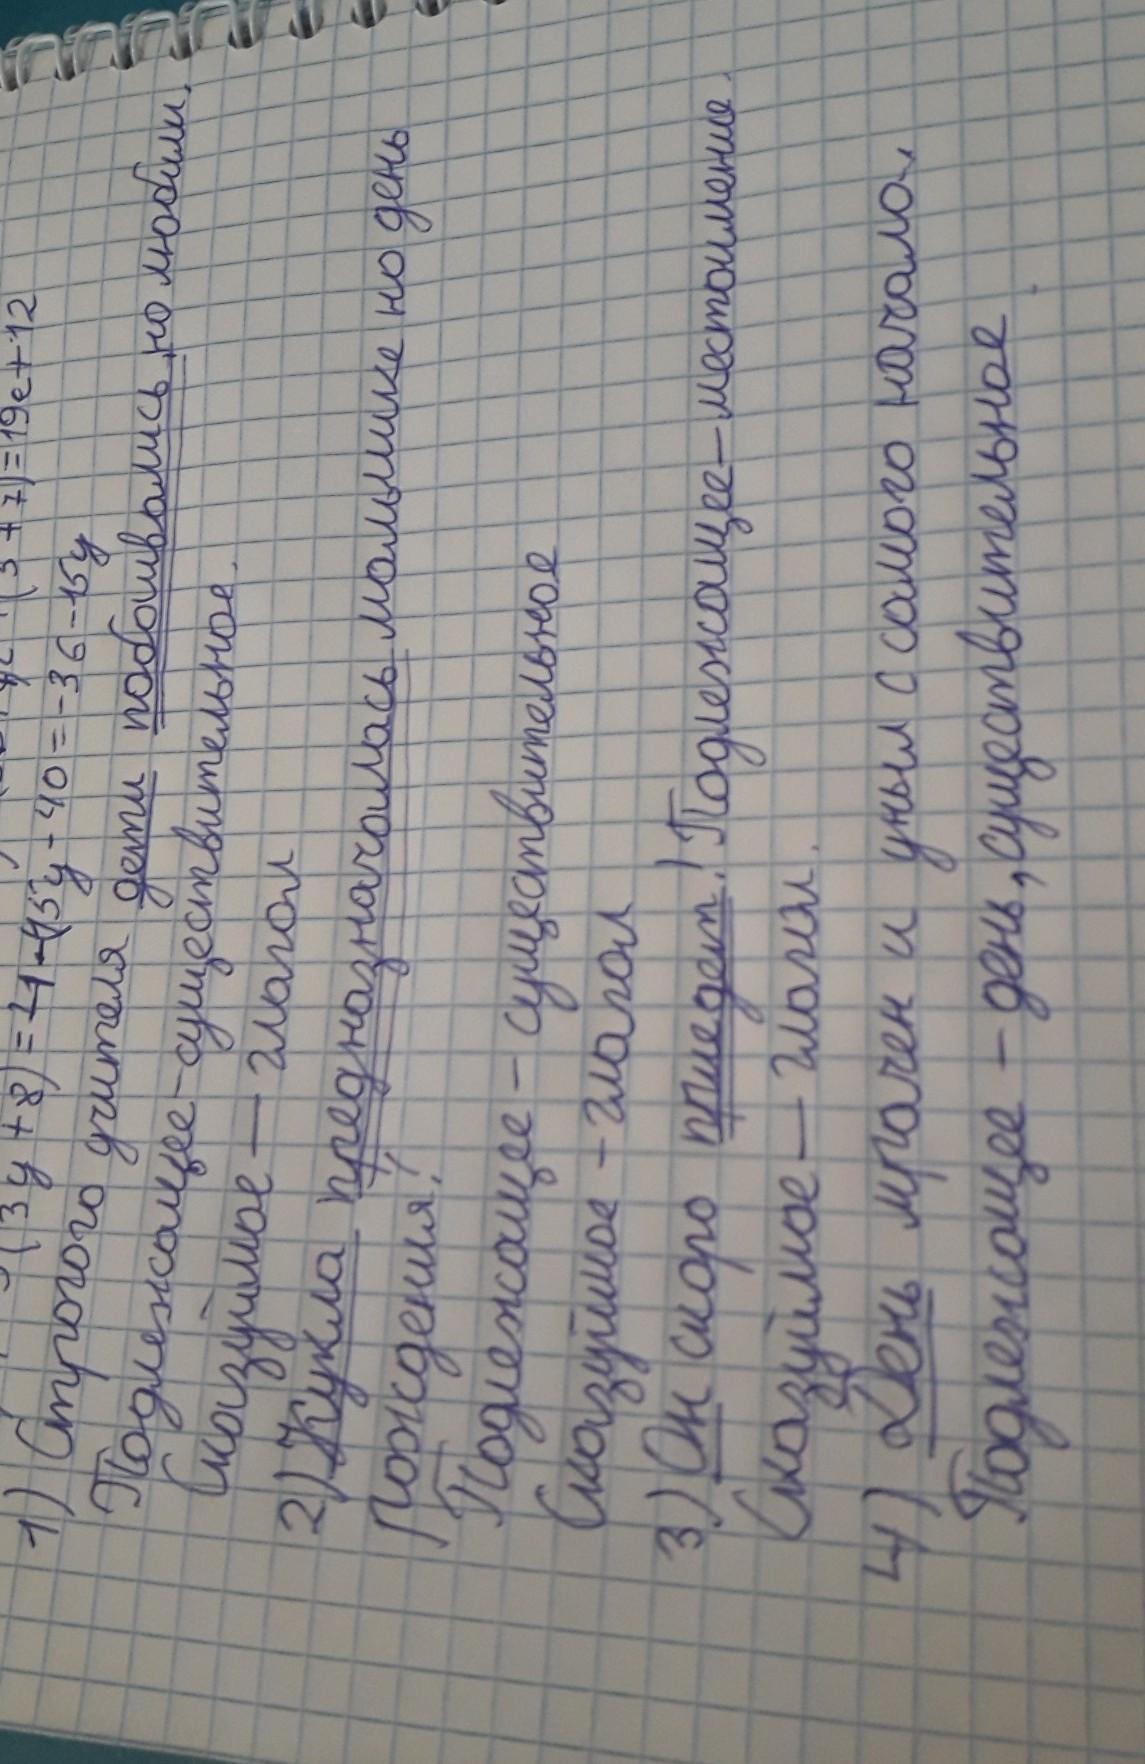 (3y + 8) = 21-45y - 40 = -36 - 15y
1) Строгого учителя дети побаивались, но любили.
Подлежащее - существительное.
Сказуймое — глагол
2) Кукла предназначалась мальшике но день
Рождения!
Подлежащее - существительное
Сказуймое - глагол
3) Он скоро приедет! Подлежащее - местоимение.
Сказуймое — глагол.
4) День мрачен и уныл с самого начала,
Подлежащее — день, существительное